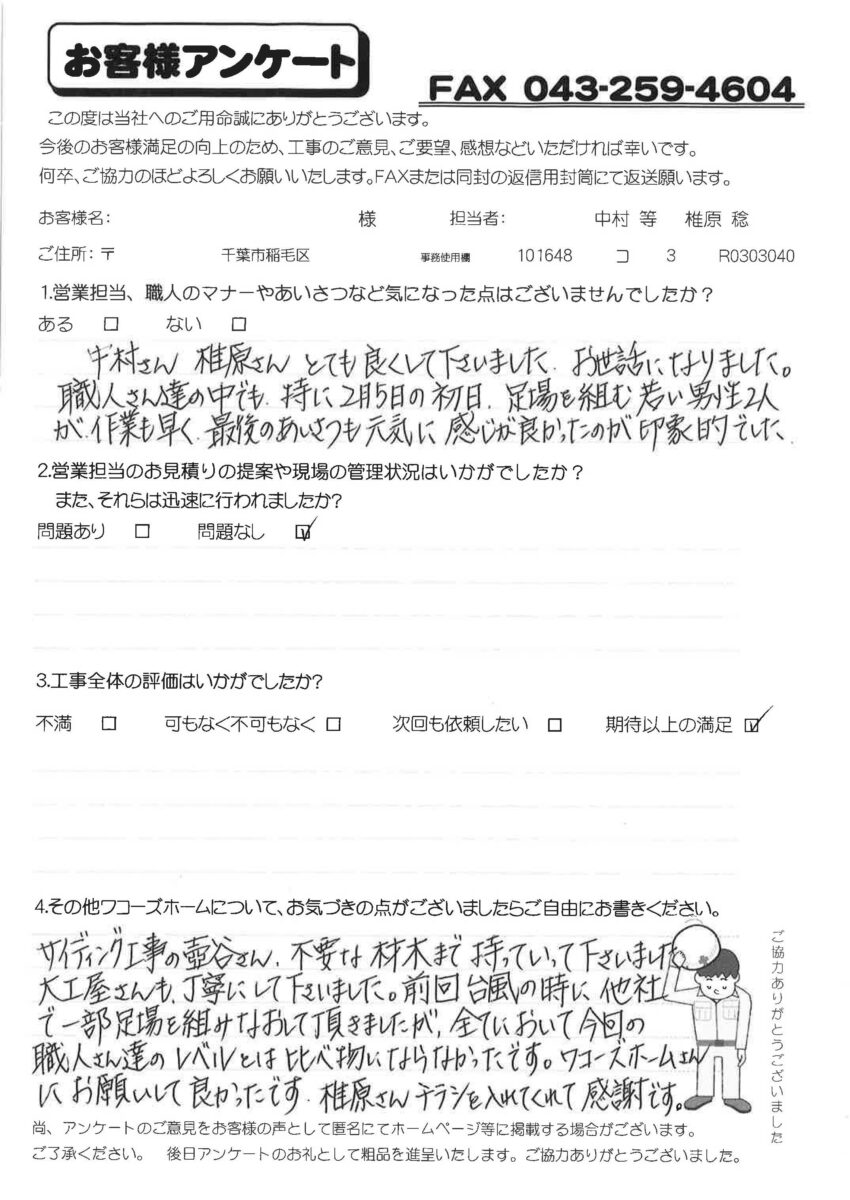 お客様アンケート
FAX 043-259-4604
この度は当社へのご用命誠にありがとうございます。
今後のお客様満足の向上のため、工事のご意見、ご要望、感想などいただければ幸いです。
何卒、ご協力のほどよろしくお願いいたします。FAXまたは同封の返信用封筒にて返送願います。
お客様名： 様 担当者： 中村 等 椎原 稔
ご住所：〒 千葉市稲毛区 事務使用欄 101648 コ 3 R0303040
1.営業担当、職人のマナーやあいさつなど気になった点はございませんでしたか？
ある □ ない □
中村さん 椎原さん とても良くして下さいました、お世話になりました。
職人さん達の中でも、特に2月5日の初日、足場を組む若い男性2人
が、作業も早く、最後のあいさつも元気に 感じが良かったのが印象的でした、
2.営業担当のお見積りの提案や現場の管理状況はいかがでしたか？
また、それらは迅速に行われましたか？
問題あり □ 問題なし ☑
3.工事全体の評価はいかがでしたか？
不満 □ 可もなく不可もなく □ 次回も依頼したい □ 期待以上の満足 ☑
4.その他ワコーズホームについて、お気づきの点がございましたらご自由にお書きください。
サイディング工事の壺谷さん、不要な材木まで持っていって下さいました
大工屋さんも、丁寧にして下さいました。前回台風の時に他社
で一部足場を組みなおして頂きましたが、全てにおいて今回の
職人さん達のレベルとは比べ物にならなかったです。ワコーズホームさん
にお願いして良かったです、椎原さんチラシを入れてくれて感謝です。
ご協力ありがとうございました
尚、アンケートのご意見をお客様の声として匿名にてホームページ等に掲載する場合がございます。
ご了承ください。 後日アンケートのお礼として粗品を進呈いたします。ご協力ありがとうございました。